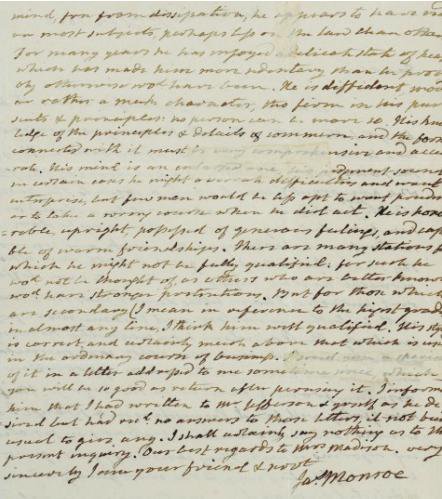 mind, far from dissipation, he appears to have
on most subjects, perhaps less on the law than other
For many years he has enjoyed a delicate state of
which was made him more sedentary than he
otherwise wod have been. He is diffident
or rather a meek character, tho firm in his pur
suits & principles: no person can be more so. His know
ledge of the principles & details of commerce, and the
connected with it must be very comprehensive and accu
rate. His mind is an judgment
in certain cases he might overrate difficulties and want
enterprise, but few men would be less apt to want
or to take a wrong course when he did act. He is hono
=rable, upright, possessed of generous feelings, and capa
ble of warm friendships. There are many stations
which he might not be fully qualified: for such he
wod not be thought of, as others who are better known
wod have stronger pretentions. But for those which
are secondary (I mean in reference to the highest grade
in almost any line, I think him well qualified. His
is correct, and certainly much above that which is
in the ordinary course of business.
of it in a letter addressed to me some time since, which
you will be so good as return after perusing it. I inform
him that I had written to Mr Jefferson & yrself as he de
sired but had recd no answers to those letters, it not being
usual to give any. I shall certainly say nothing as to the
present inquiry. Our best regards to Mrs Madison. very
sincerely I am your friend &
Jas Monroe